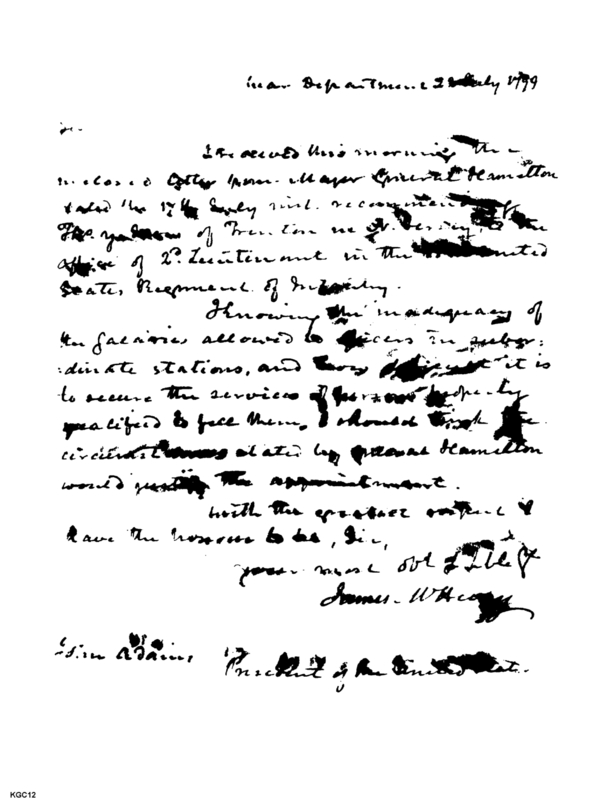 War Department 2 July 1799
Sir.
I received this morning the
inclosed letter from Major General Hamilton
dated the 17th July inst. recommending
of Trenton in N. Jersey, to the
office of 2d. Lieutenant in the United
States Regiment of Infantry.
Knowing the inadequacy of
the Salaries allowed to officers in subor:
:dinate stations, and how difficult it is
to secure the services of persons properly
qualified to fill them, I should think the
circumstances stated by General Hamilton
would justify the appointment.
With the greatest respect I
have the honour to be, Sir,
your most obt &
James McHenry
John Adams,
President of the United States.
KGC12